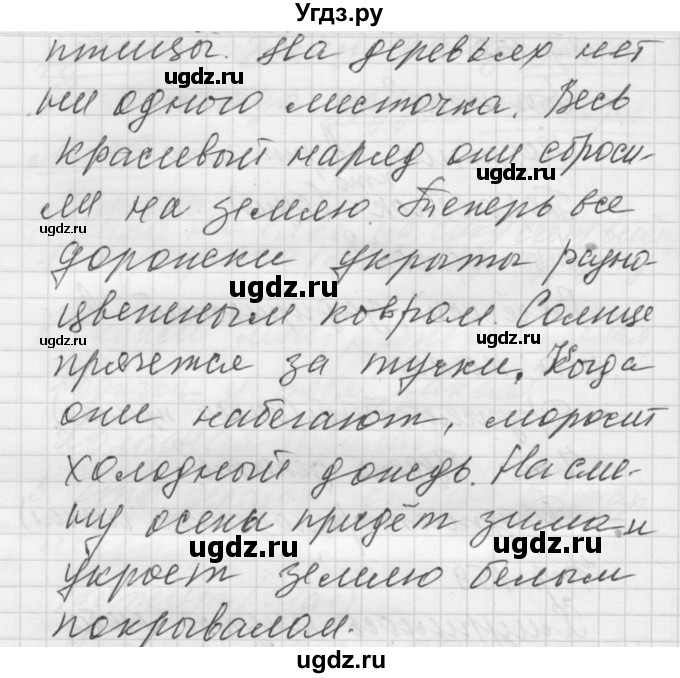 Угдз.ру
птицы. На деревьях нет
ugdz.ru
ни одного листочка. Весь
ugdz.ru
красивый наряд они сброси-
ugdz.ru
ли на землю. Теперь все
ugdz.ru
дорожки укрыты разно-
ugdz.ru
цветным ковром. Солнце
ugdz.ru ugdz.ru
прячется за тучки. Когда
они набегают, моросит
холодный дождь. На сме-
ugdz.ru
ну осени придёт зима и
ugdz.ru ugdz.ru
укроет землю белым
покрывалом.
ugdz.ru